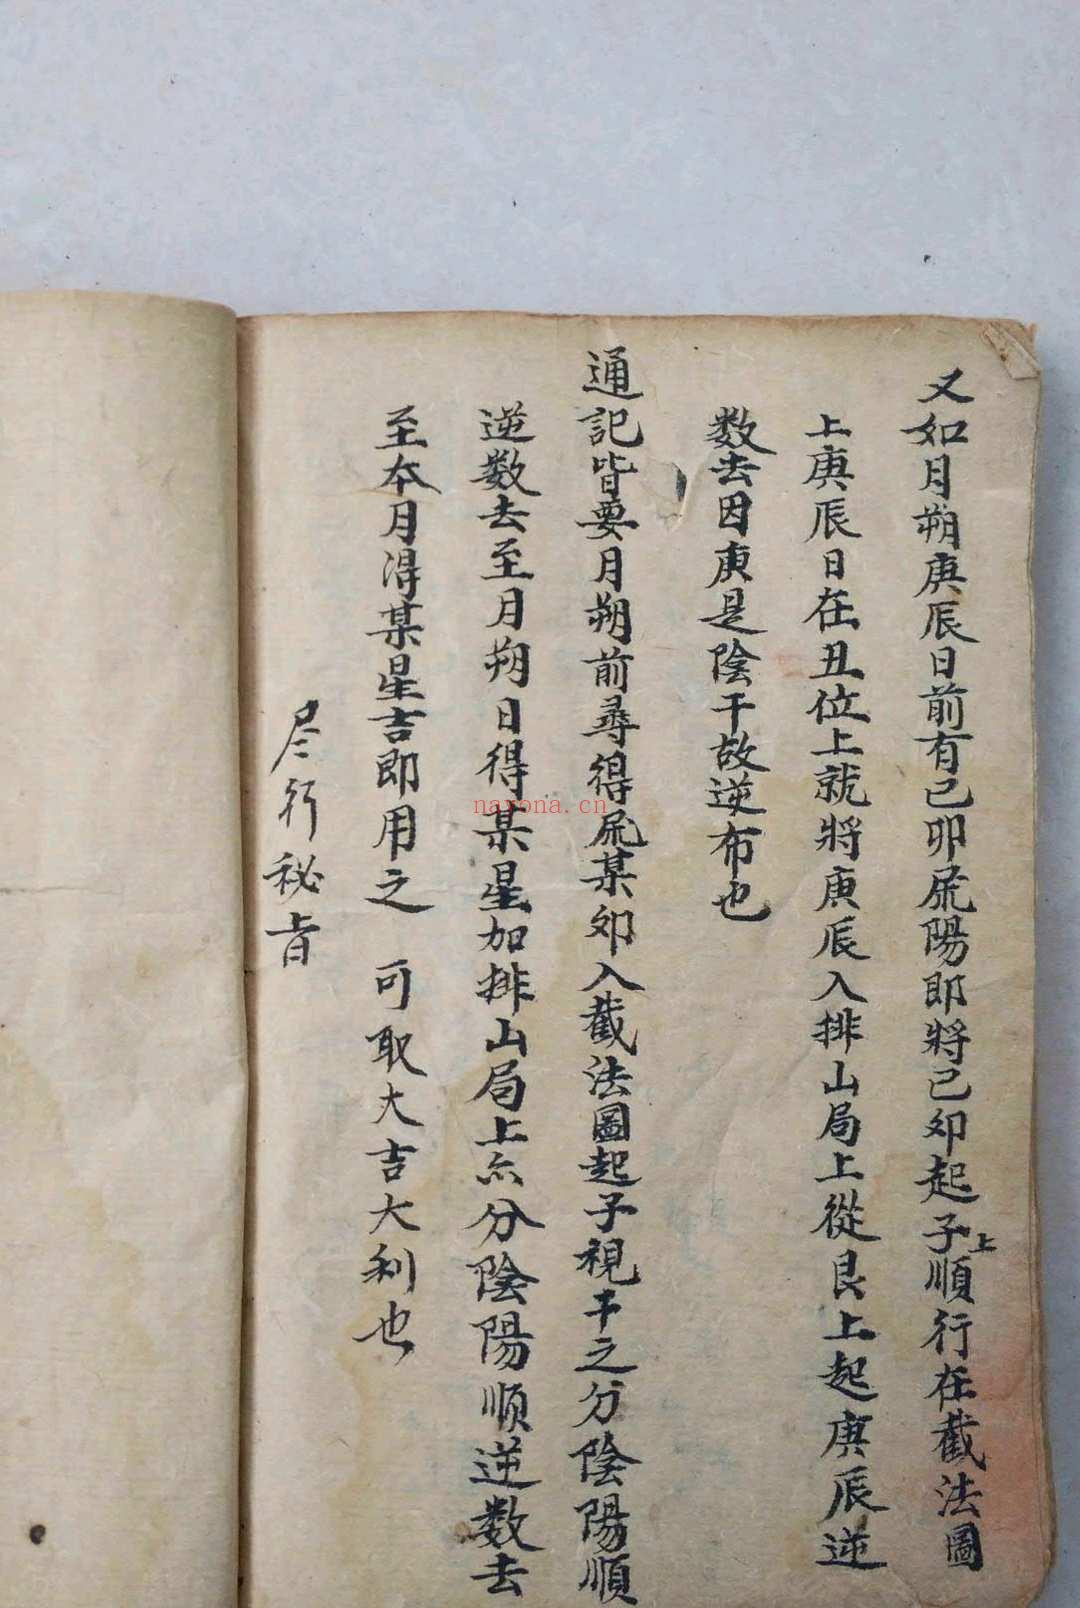 又如月朔庚辰日前有己卯屬陽即將己卯起子上順行在截法圖
上庚辰日在丑位上就將庚辰入排山局上從艮上起庚辰逆
数去因庚是陰干故逆布也
通記皆要月朔前尋得屬某卯入截法圖起子視干之分陰陽順
逆数去至月朔日得某星加排山局上亦分陰陽順逆数去
至本月得某星吉即用之 可取大吉大利也
尽行秘旨
nayona.cn